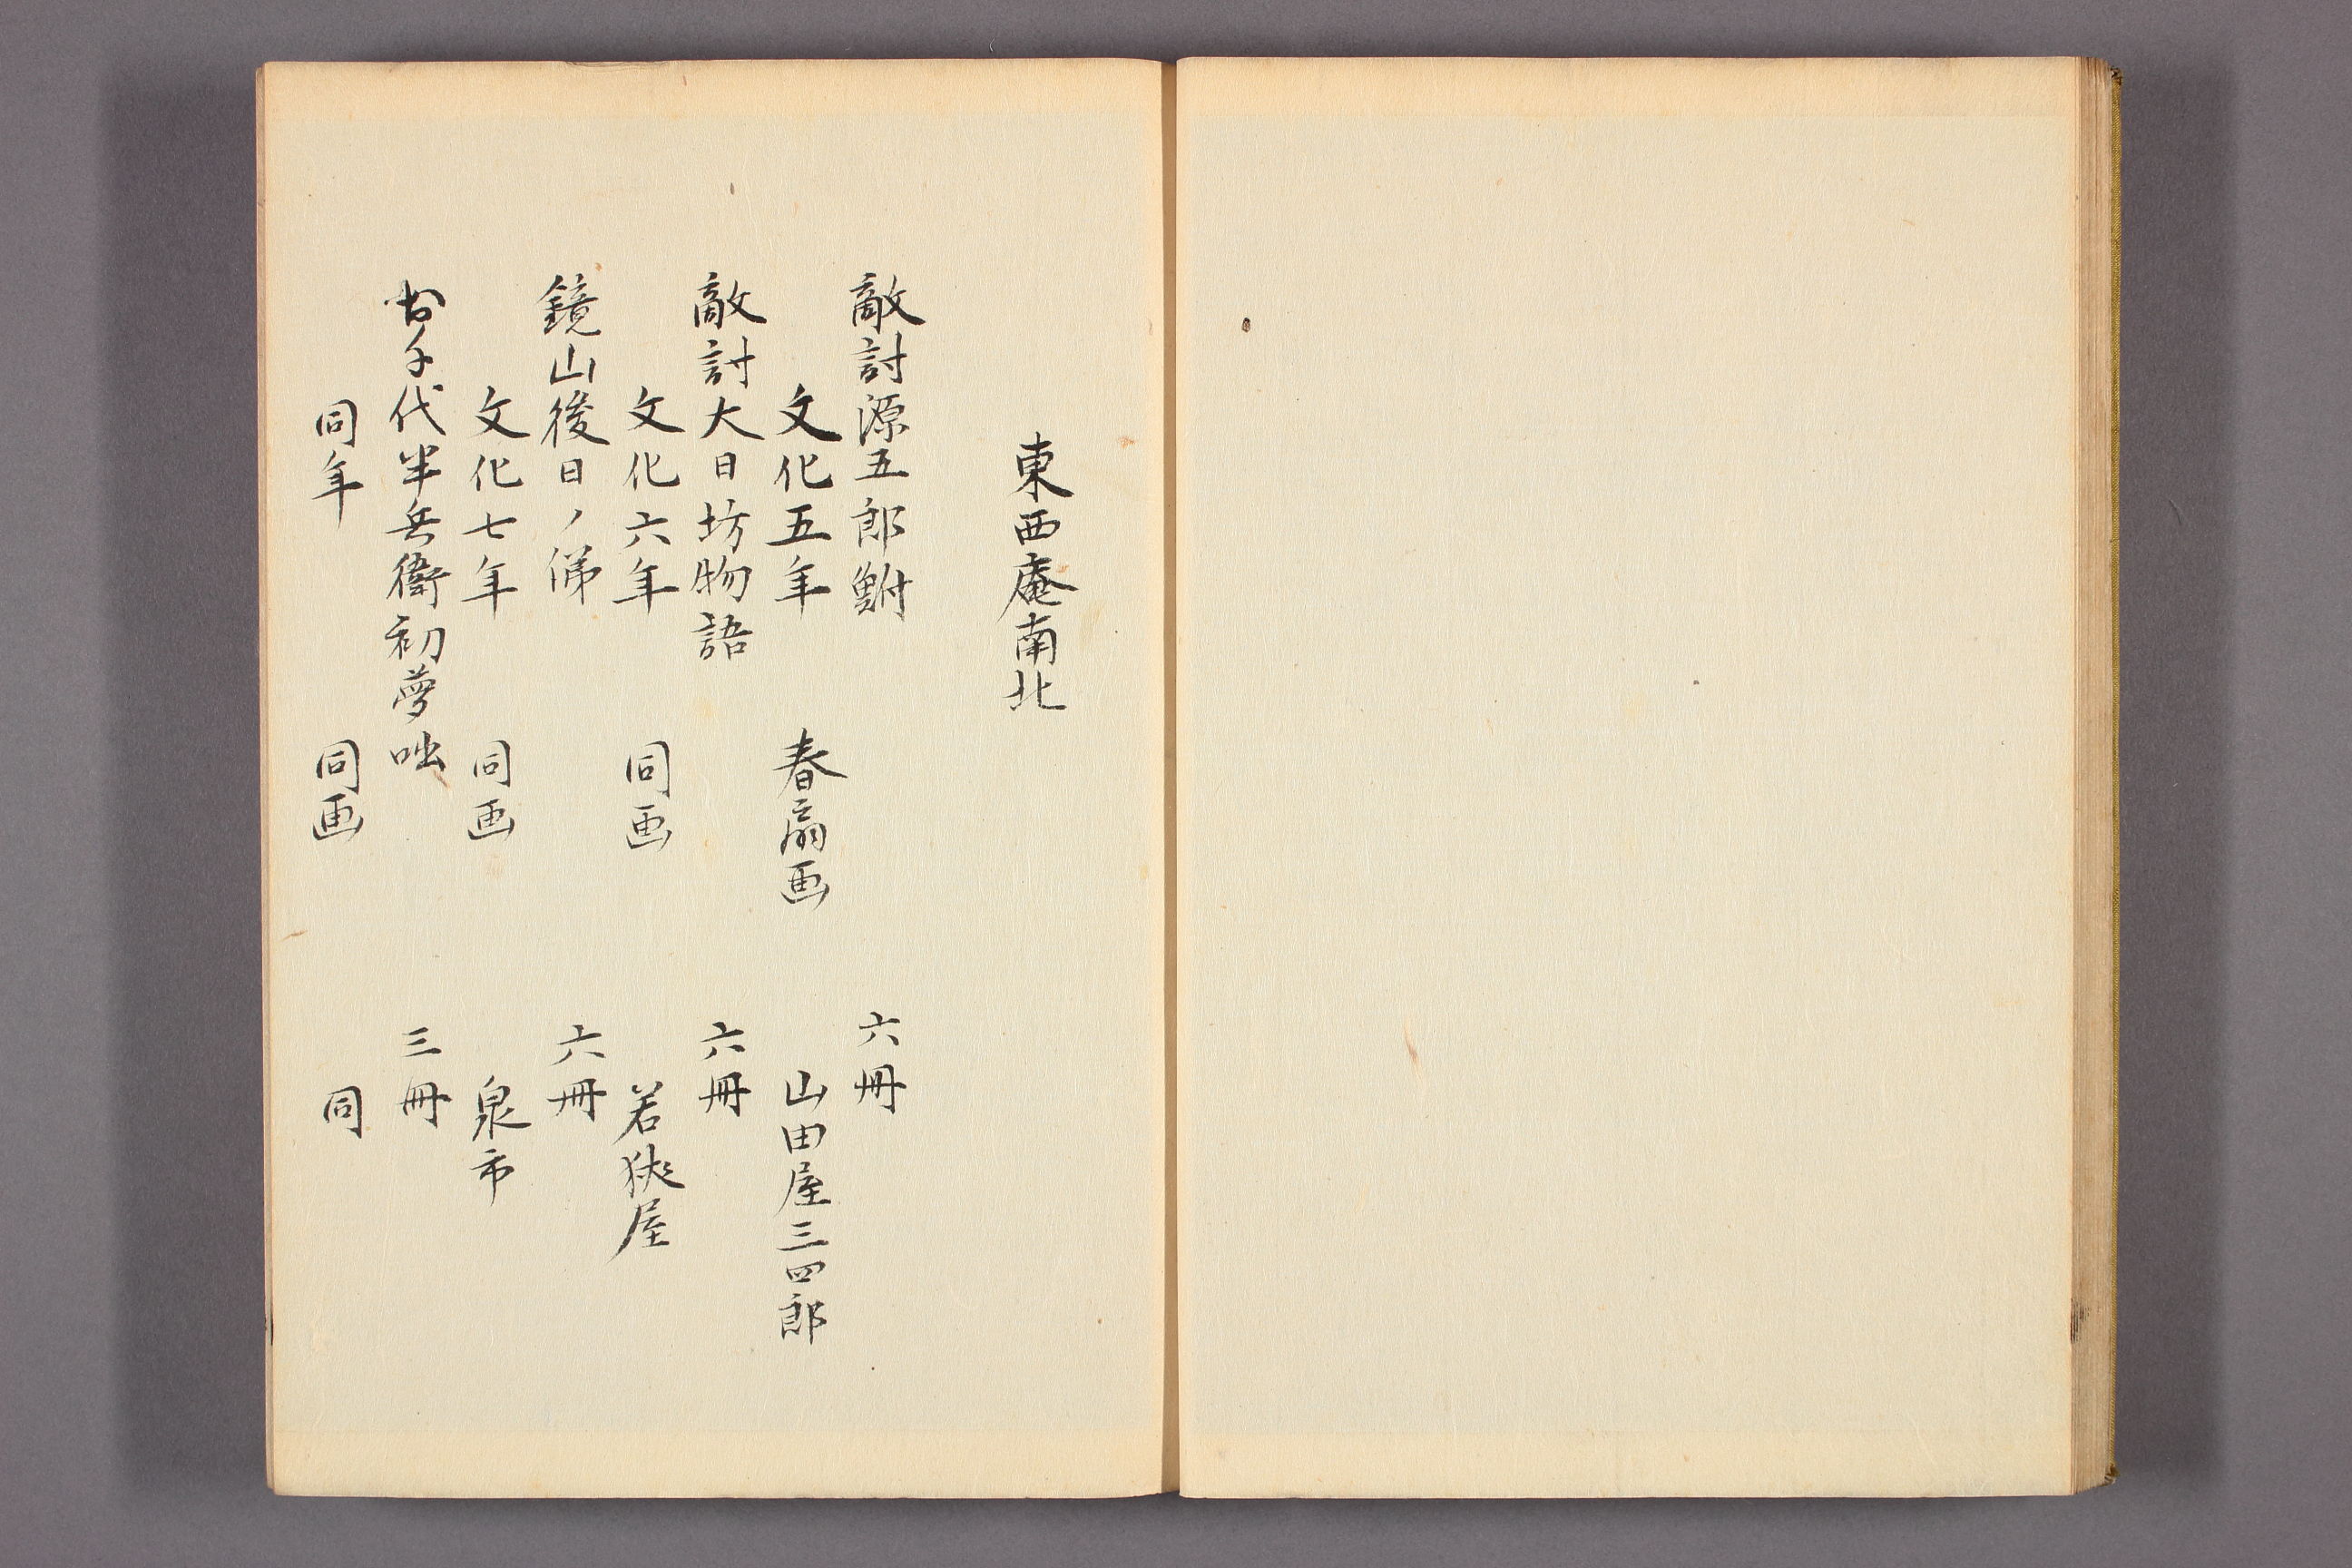 東西庵南北
敵討源五郎鮒 六冊
文化五年 春扇画 山田屋三四郎
敵討大日坊物語 六冊
文化六年 同画 若狹屋
鏡山後日ノ俤 六冊
文化七年 同画 泉市
千代半兵衛初夢咄 三冊
同年 同画 同